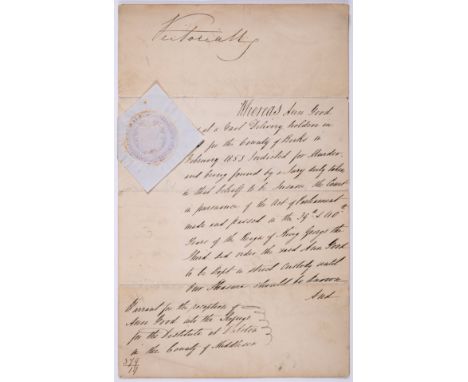 Victoria R
Whereas Ann Good
at a Gaol Delivery holden in
for the County of Berks in
February 1853 Indicted for Murder
and being found by a Jury duly taken
in that behalf to be Insane the Court
in pursuance of the Act of Parliament
made and passed in the 39th & 40th
Years of the Reign of King George the
Third did order the said Ann Good
to be kept in strict Custody until
Our Pleasure should be known
And
Warrant for the reception of
Ann Good into the Refuge
for the Destitute at Dalston
in the County of Middlesex